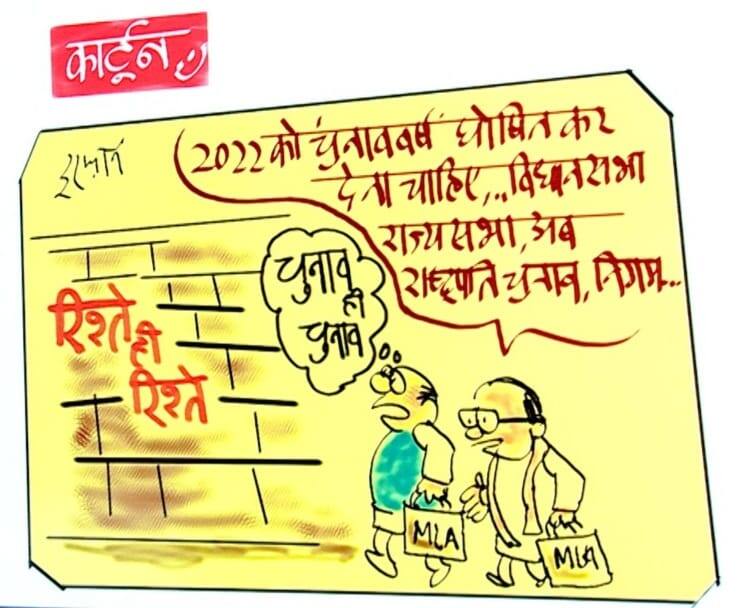 कार्टून
इरफान
2022 को चुनाव वर्ष घोषित कर
देना चाहिए,.. विधानसभा
राज्यसभा, अब
राष्ट्रपति चुनाव, निगम...
चुनाव
ही
चुनाव
रिश्ते
ही
रिश्ते
MLA
MLA